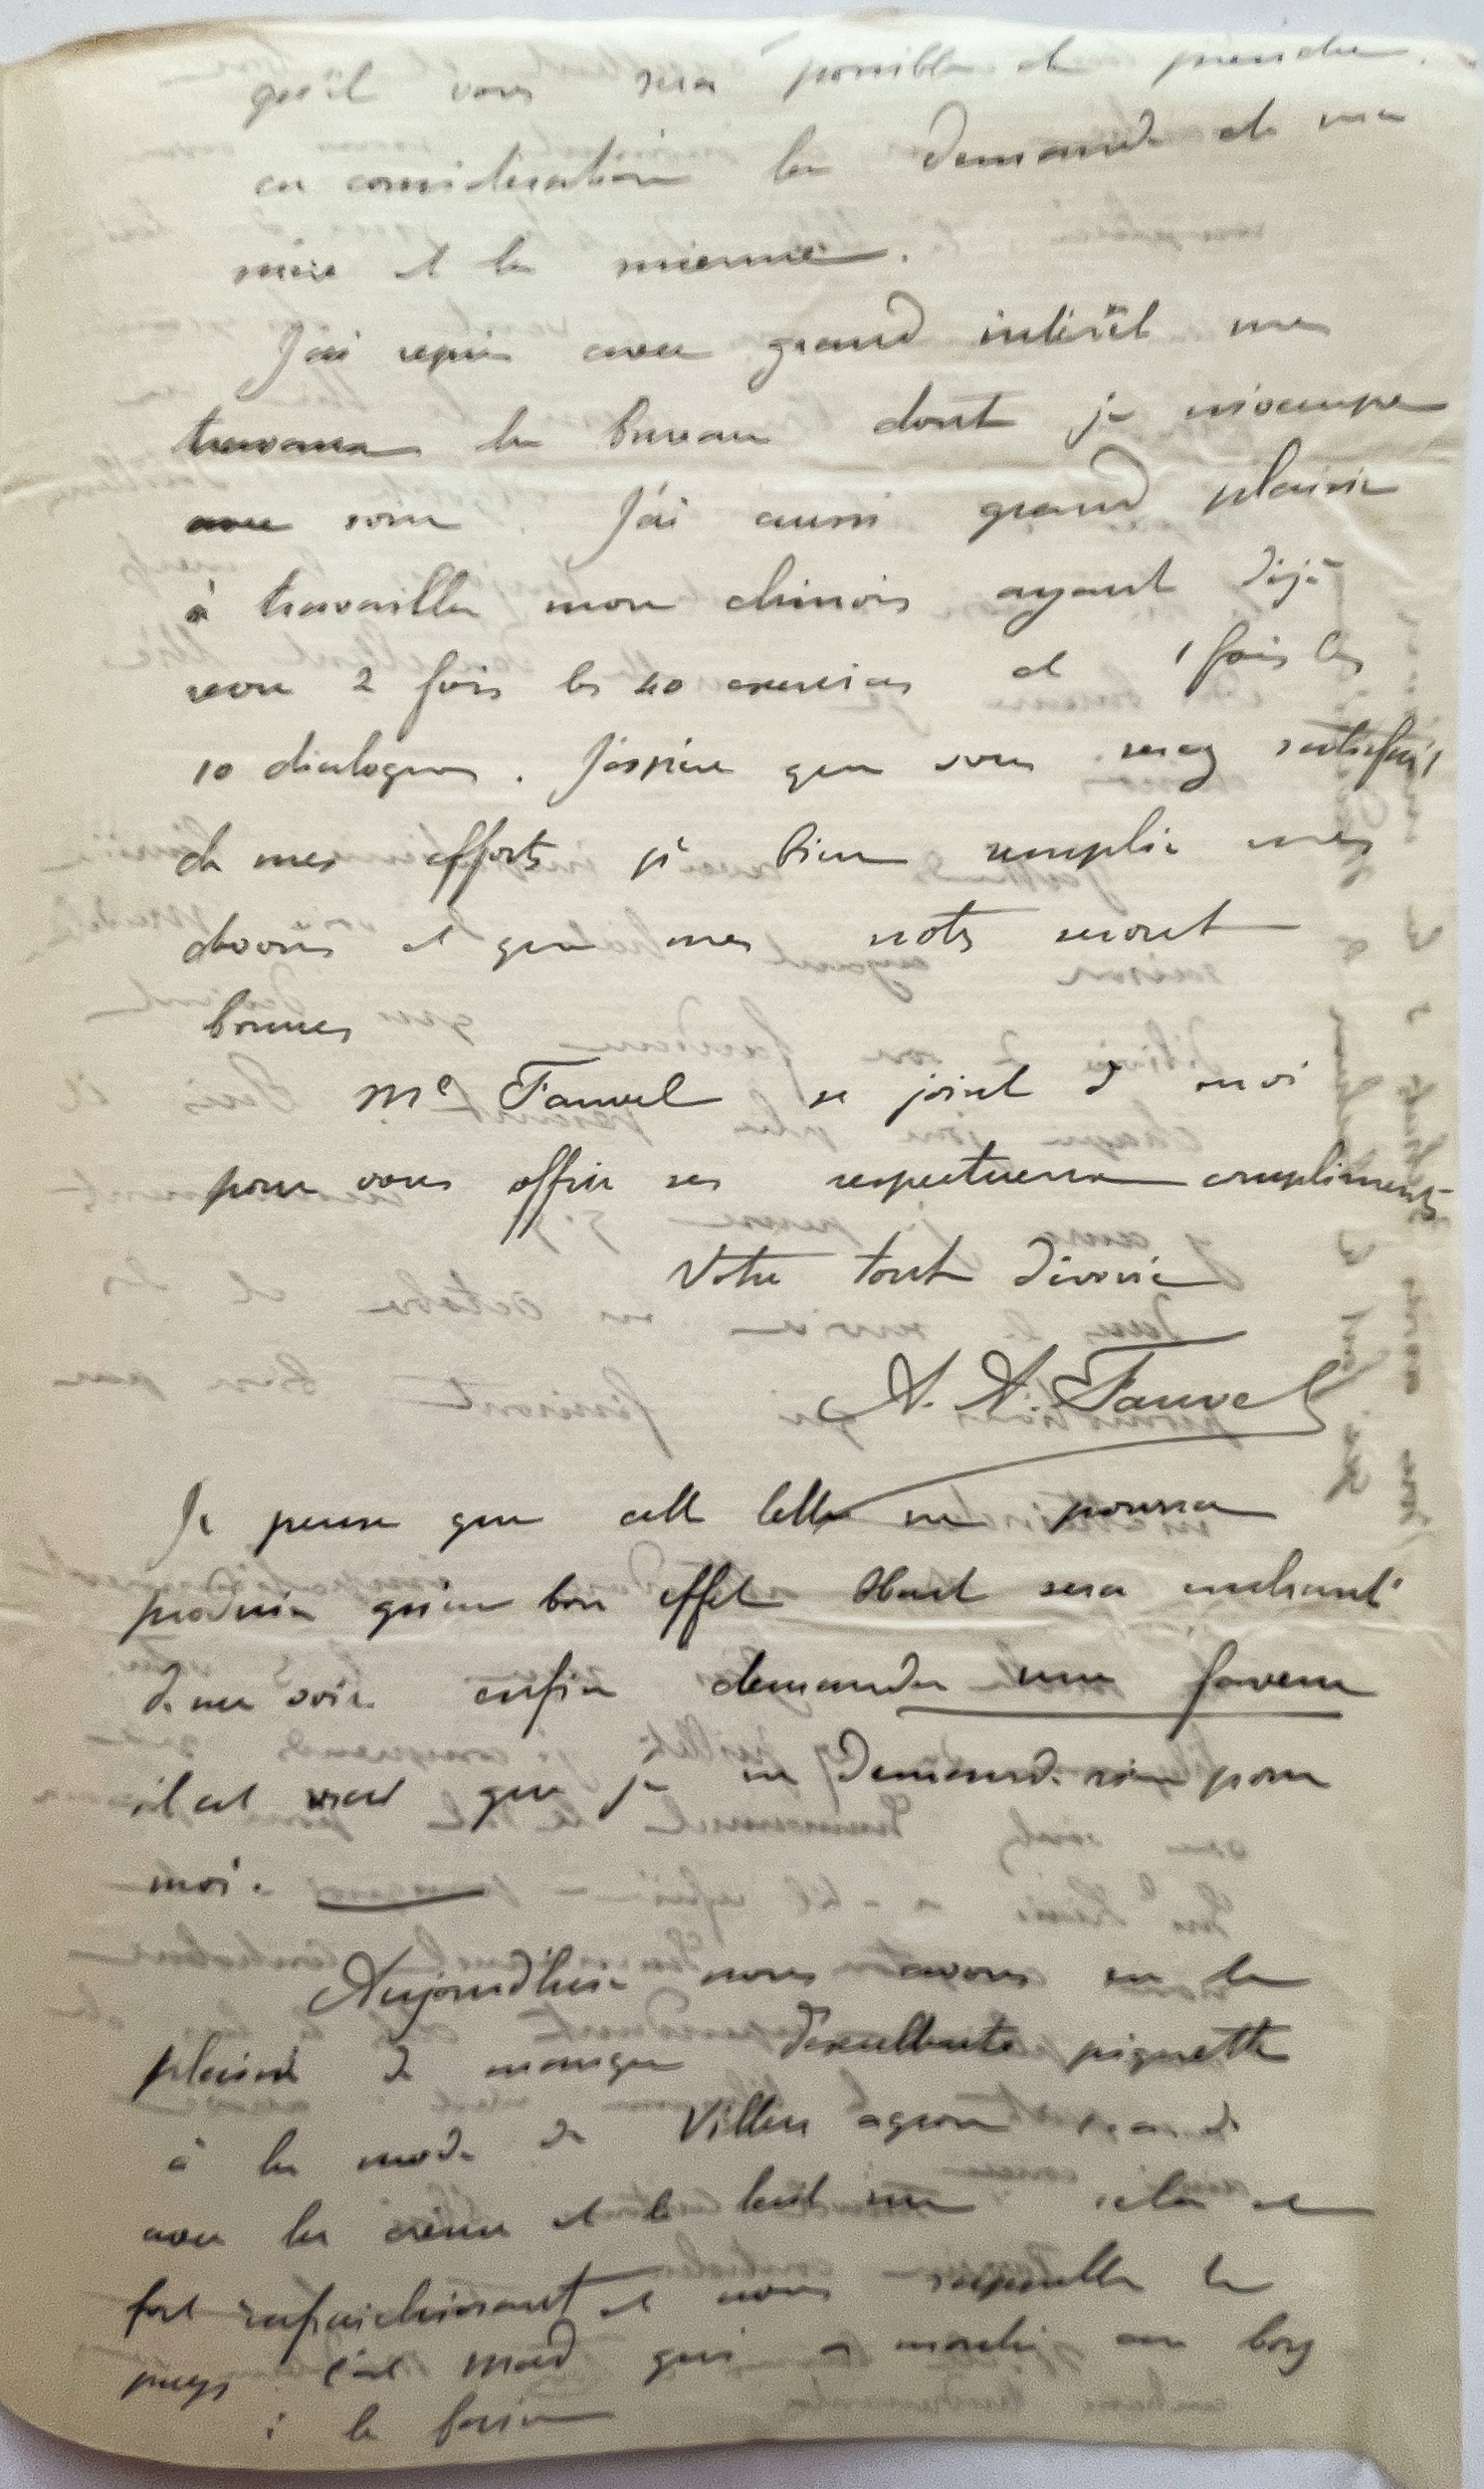 qu'il vous sera possible de prendre
en considération la demande de ma
mère et la mienne.
J'ai repris avec grand intérêt mes
travaux de bureau dont je m'occupe
avec soin. J'ai aussi grand plaisir
à travailler mon chinois ayant déjà
revu 2 fois les 40 exercices et 1 fois les
10 dialogues. J'espère que vous serez satisfait
de mes efforts je bien remplir mes
devoirs et que mes notes seront
bonnes
Me Fauvel se joint à moi
pour vous offrir ses respectueux compliments
Votre tout dévoué
A. A. Fauvel
Je pense que cette lettre ne pourra
produire qu'un bon effet Hart sera enchanté
de me voir enfin demander une faveur
il est vrai que je ne demande rien pour
moi.
Aujourd'hui nous avons eu le
plaisir de manger d'excellente piquette
à la mode de
avec la crème et le lait cela est
fort rafraichissant et nous rappelle le
pays c'est Maud qui a montré au boy
à la faire